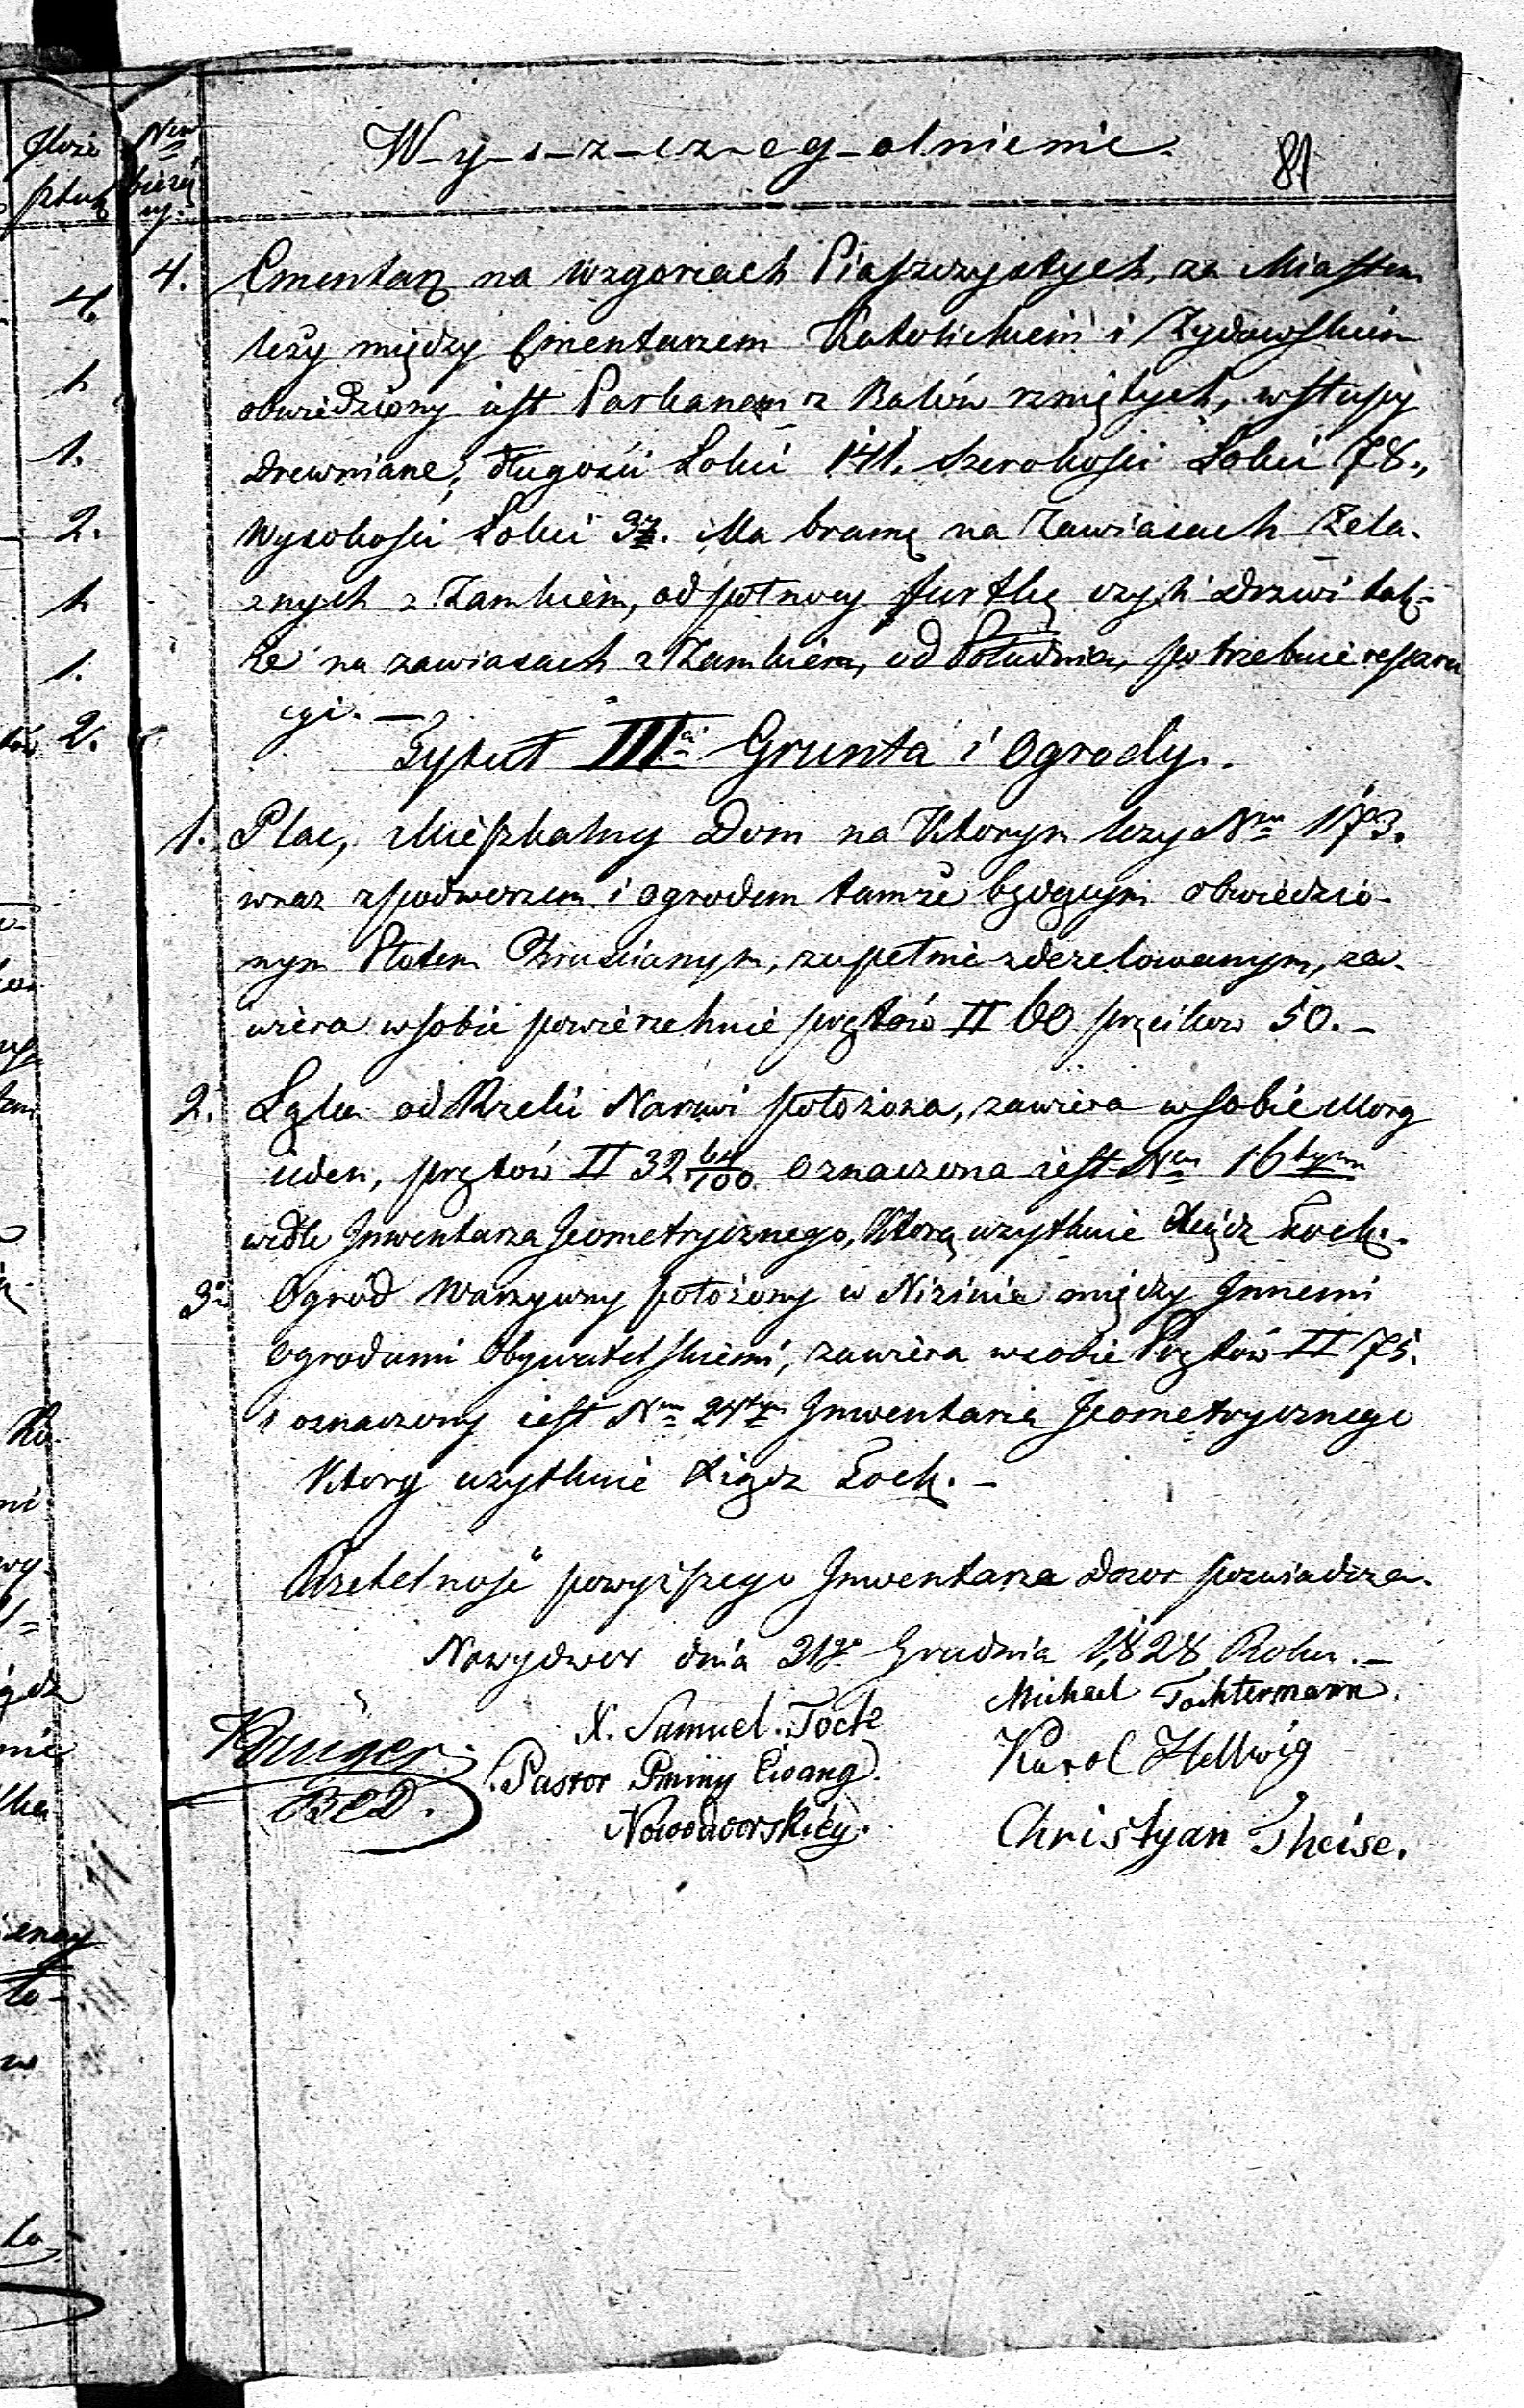 Ilość
sztuk
Nro
bieżą
cy.
W-y-s-z-cz-eg-olnienie.
81
4. Cmentarz na wzgorzach Piaszczystych, za Miastem
leży między Cmentarzem Katolickiem i Zydowskiem
obwiedziony iest Parkanem z Balów rzniętych, w słupy
drewniane, długości Łokci 141. szerokości Łokci 78.,
wysokości Łokci Ma bramę na Zawiasach Zela-
znych z Zamkiem, od połnocy furtkę czyli drzwi tak-
że na zawiasach z Zamkiem, od Południa, potrzebuie repara
cyi. —
Tytuł III Grunta i Ogrody.
1. Plac, Mieszkalny Dom na Ktorym leży Nrm 173.
wraz z podworzem i ogrodem tamże będącym obwiedzio-
nym Płotem Chruscianym, zupełnie zdezelowanym, za-
wiera w sobie powierzchnie prętów II 60 pręcikow 50. –
2. Łąka od Rzeki Narwi położona, zawiera w sobie Morg
ieden, prętów II 32 64/100 oznaczona iest Nrm 16tym
wedle Inwentarza Jeometrycznego, Ktorą uzytkuie Xiądz Tock.
3. Ogród Warzywny położony w Nizinie między Innemi
ogrodami Obywatelskiemi, zawiera w sobie Prętów II 75.
i oznaczony iest Nrm 24tym Inwentarza Jeometrycznego
Ktory uzytkuie Xiądz Tock. –
Rzetelność powyższego Inwentarza dozor poswiadcza.
Nowydwor dnia 31go Grudnia 1828 Roku. –
Krüger
X. Samuel Tock
Pastor Gminy Ewang.
Nowodworskiéy.
Michael Tochtermann.
Karol Hellwig
Christyan Theise.
4.
1.
1.
2.
1.
1.
2.